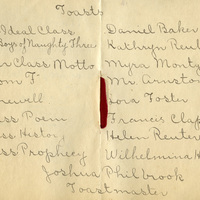 Toasts
Ideal Class Daniel Baker
Boys of Naughty Three Kathryn
Class Motto Myra Mont
Mr.
Farewell Cora Foster
Class Poem Frances Clap
Class Histor Helen Reuter
Class Prophecy Wilhelmina H
Joshua Philbrook
Toastmaster